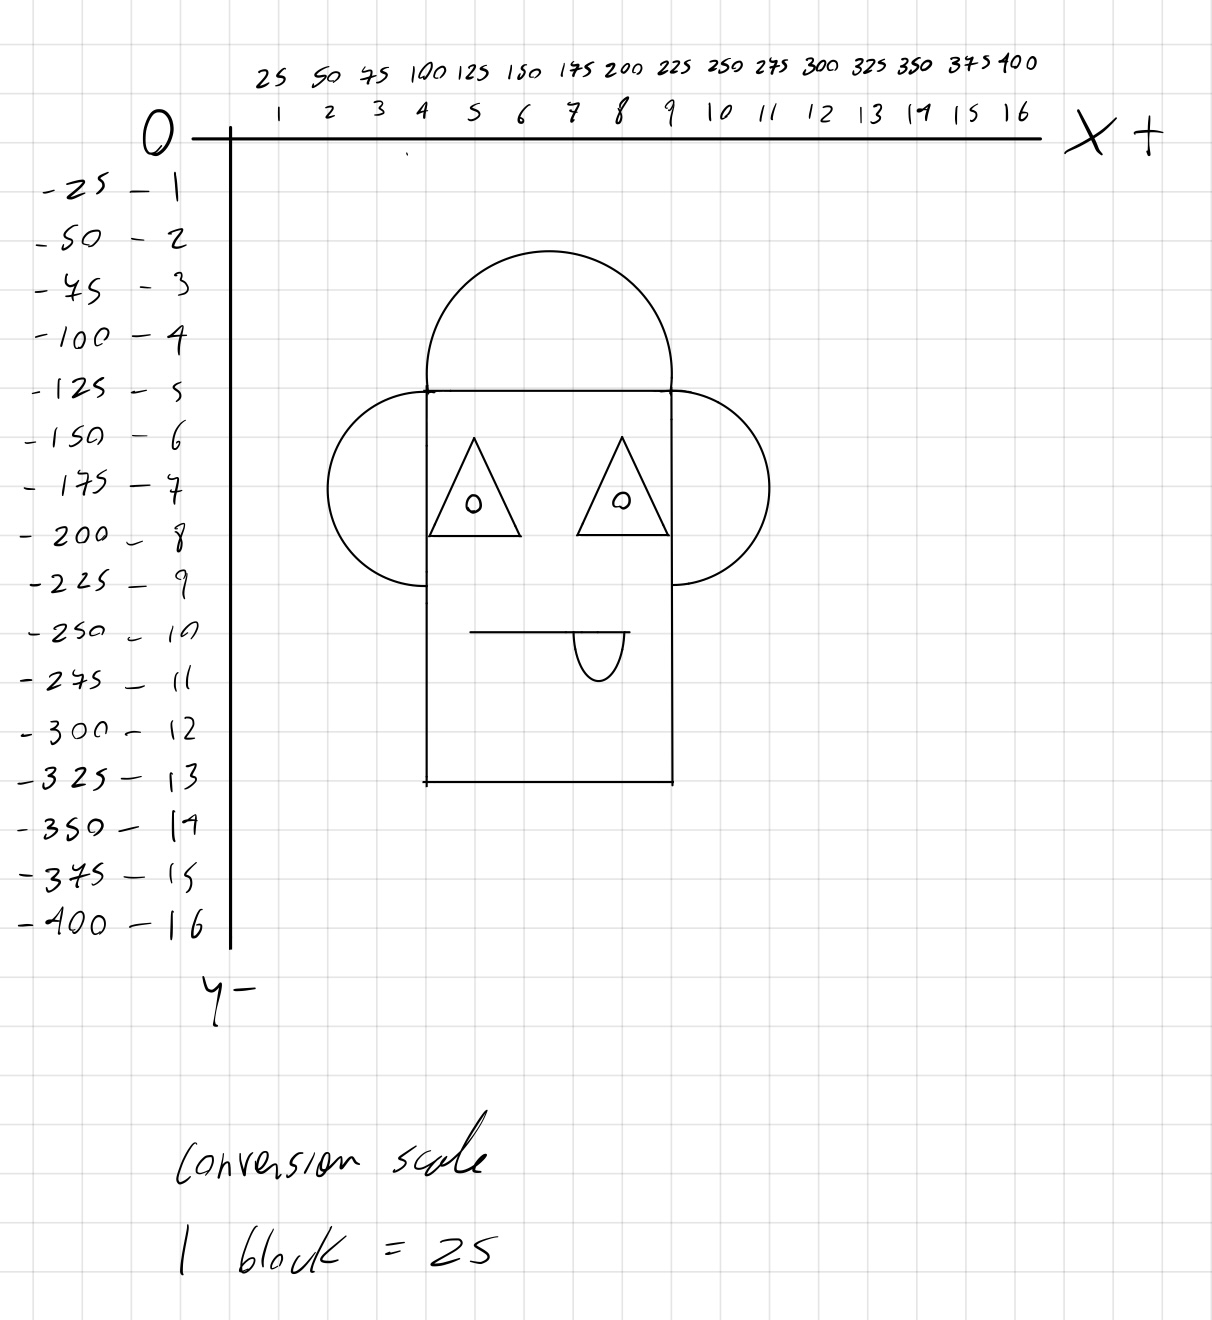 25 50 75 100 125 150 175 200 225 250 275 300 325 350 375 400
1 2 3 4 5 6 7 8 9 10 11 12 13 14 15 16
0 X +
-25 - 1
-50 - 2
-75 - 3
-100 - 4
-125 - 5
-150 - 6
-175 - 7
-200 - 8
-225 - 9
-250 - 10
-275 - 11
-300 - 12
-325 - 13
-350 - 14
-375 - 15
-400 - 16
y-
Conversion scale
1 block = 25